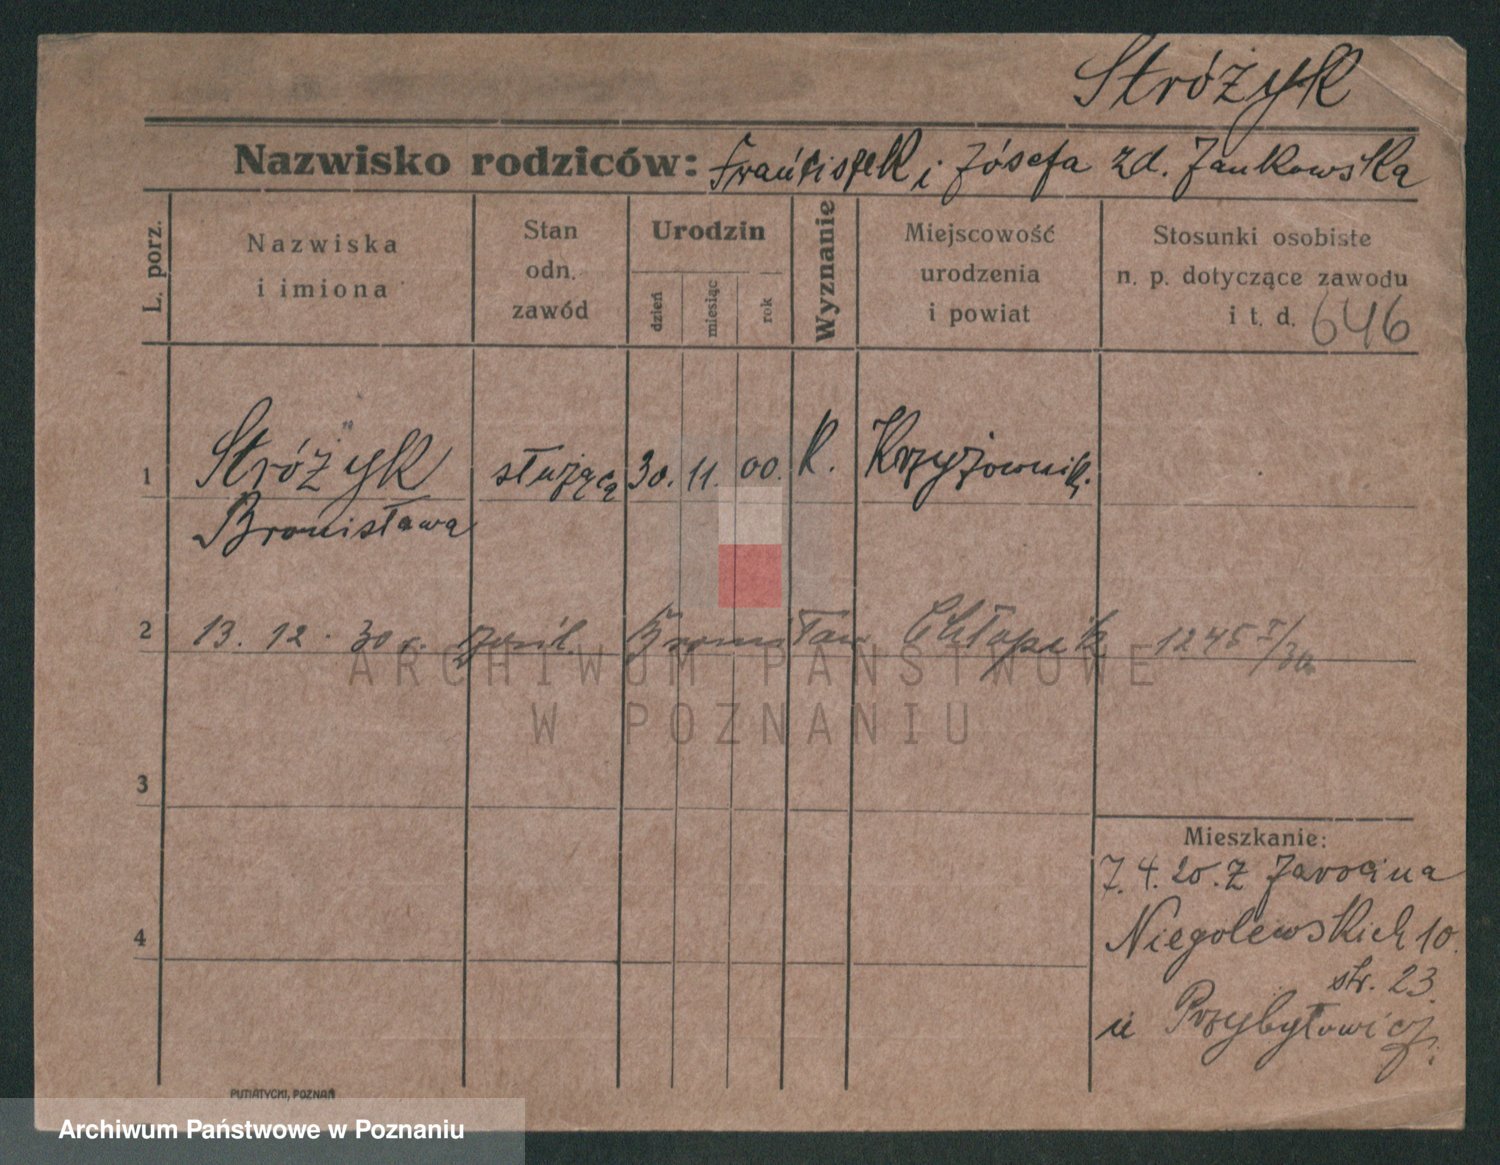 Stróżyk
Nazwisko rodziców: Franciszek i Józefa zd. Jankowska
L. porz.
Nazwiska
i imiona
Stan
odn.
zawód
Urodzin
dzień
miesiąc
rok
Wyznanie
Miejscowość
urodzenia
i powiat
Stosunki osobiste
n. p. dotyczące zawodu
i t. d. 646
1 Stróżyk służąca 30. 11. 00. K.
Bronisława
2 13. 12. 30 r. Chłapik 1245
3
4
Mieszkanie:
7. 4. 20. Z Jarocina
Niegolewskich 10.
str. 23.
u Przybyłowicz
PUTIATYCKI, POZNAŃ
ARCHIWUM PAŃSTWOWE
W POZNANIU
Archiwum Państwowe w Poznaniu